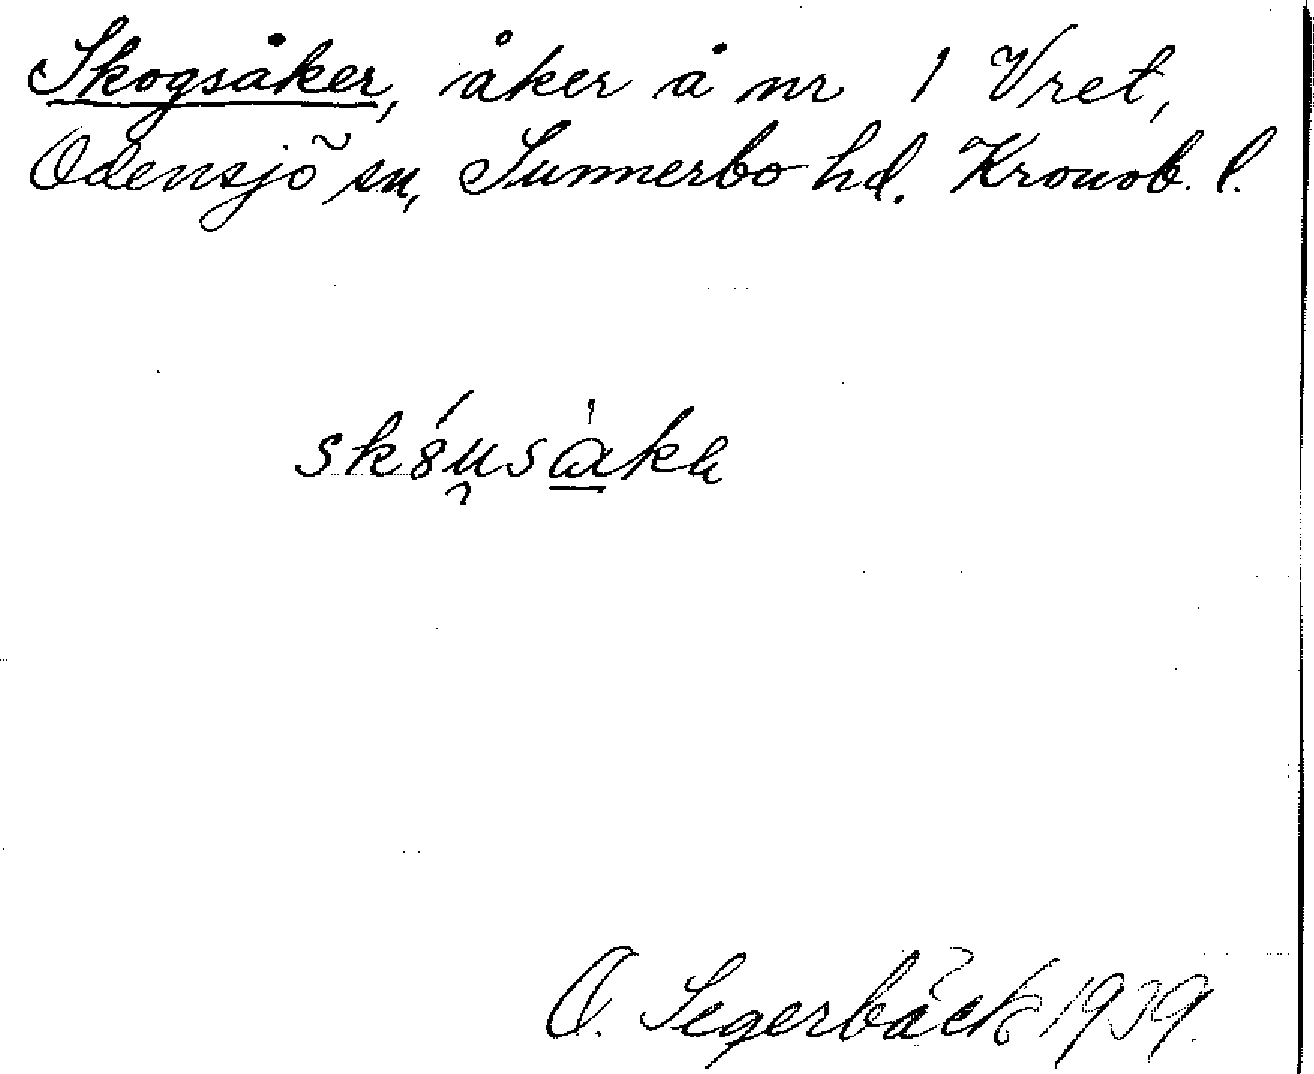 Skogsåker, åker å nr 1 Vret,
Odensjö sn, Sunnerbo hd. Kronob. l.
O. Segerbäck 1939.